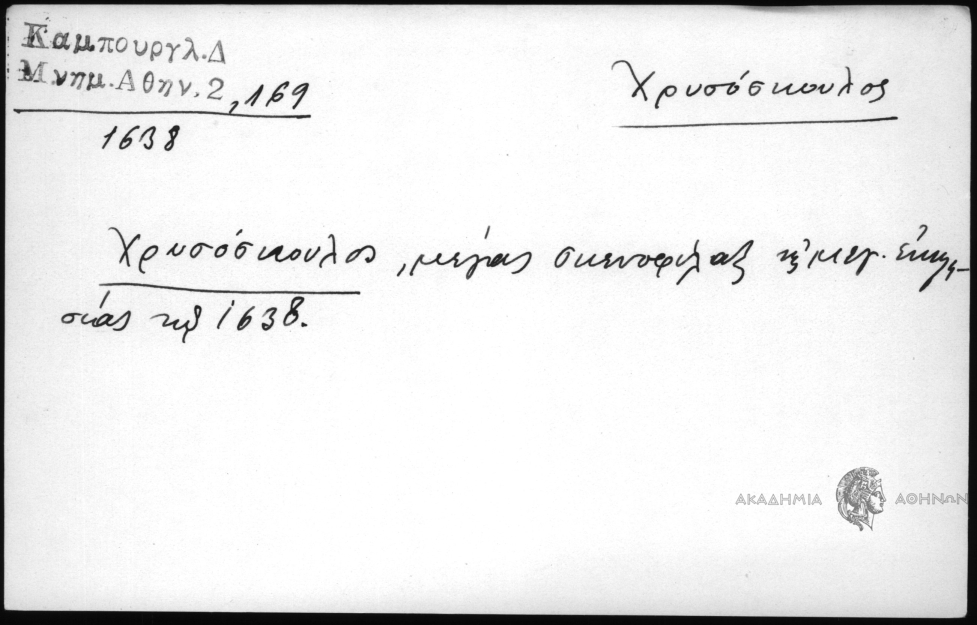 Καμπουργλ.Δ
Μνημ.Αθην.2,169
1638
Χρυσόσκουλος
Χρυσόσκουλος, μέγας σκευοφύλαξ τῆς μεγ. ἐκκλη-
σίας τῷ 1638.
ΑΚΑΔΗΜΙΑ ΑΘΗΝΩΝ